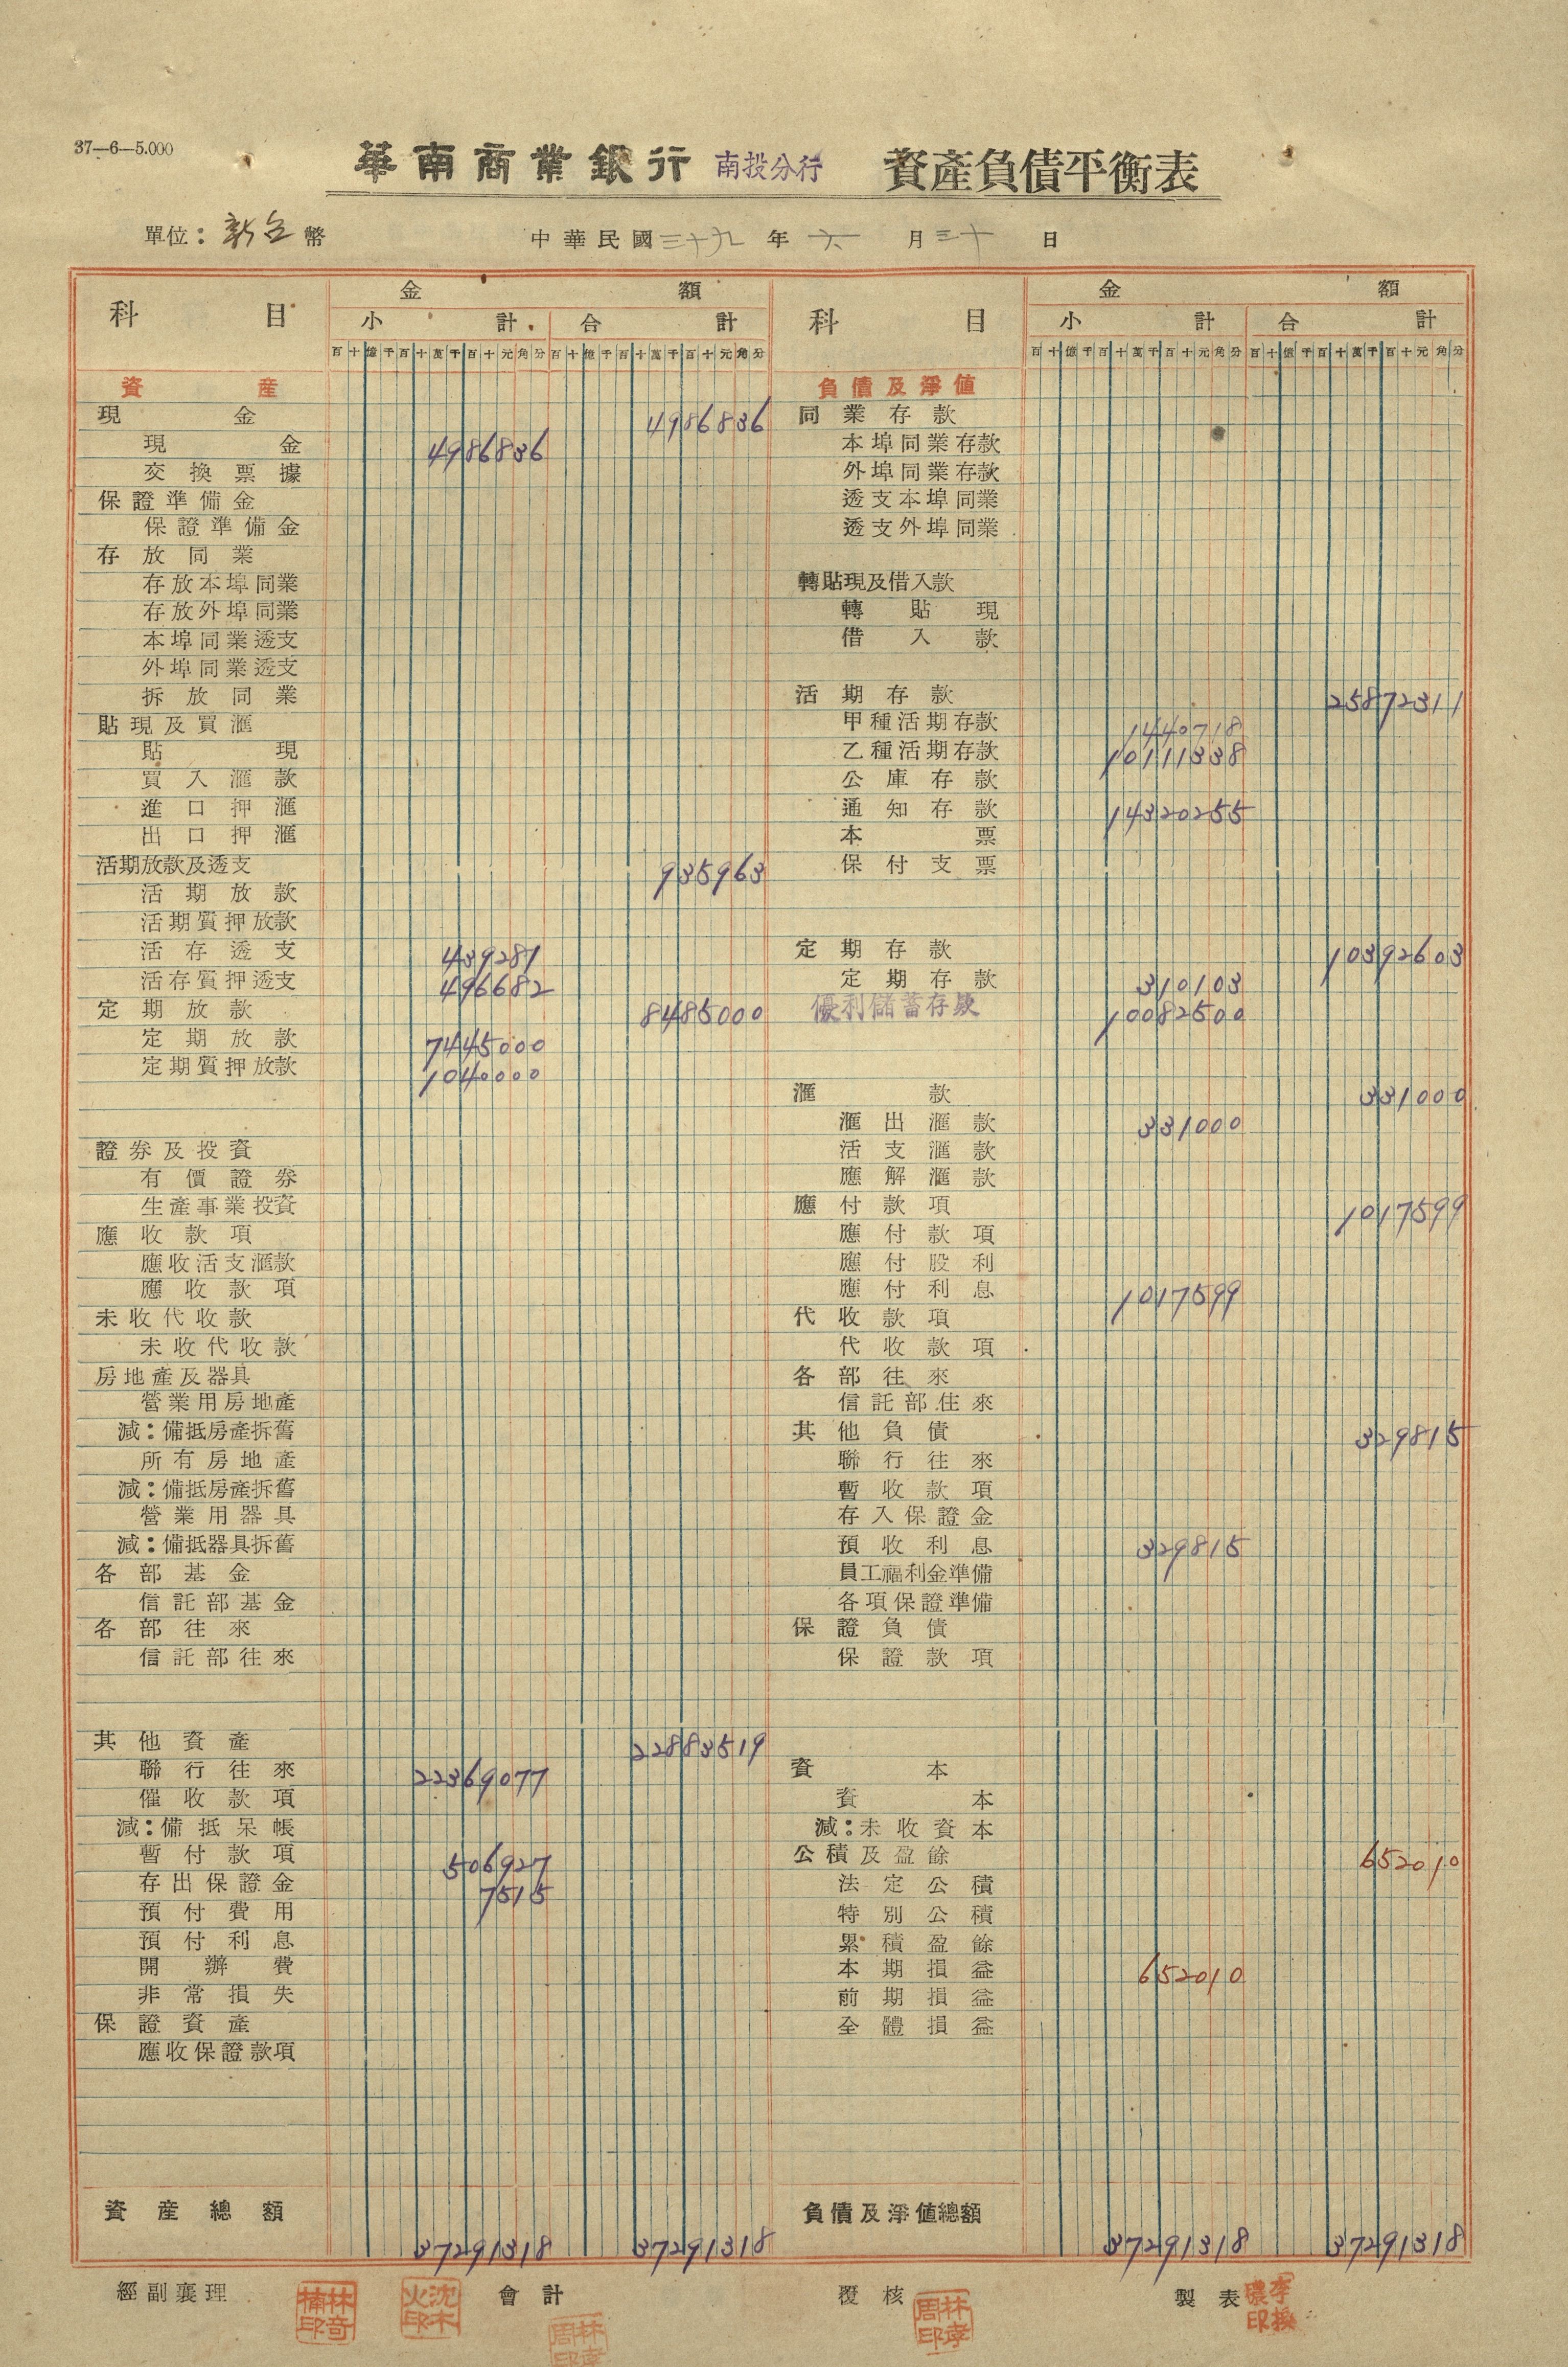 37—6—5.000
華南商業銀行 南投分行 資產負債平衡表
單位：新台幣 中華民國三十九年六月三十日
科目 金額
小計 合計
百十億千百十萬千百十元角分 百十億千百十萬千百十元角分
資產
現金 4986836
現金 4986836
交換票據
保證準備金
保證準備金
存放同業
存放本埠同業
存放外埠同業
本埠同業透支
外埠同業透支
拆放同業
貼現及買滙
貼現
買入滙款
進口押滙
出口押滙
活期放款及透支 935963
活期放款
活期質押放款
活存透支 439281
活存質押透支 496682
定期放款 8485000
定期放款 7445000
定期質押放款 1040000
證券及投資
有價證券
生產事業投資
應收款項
應收活支滙款
應收款項
未收代收款
未收代收款
房地產及器具
營業用房地產
減：備抵房產拆舊
所有房地產
減：備抵房產拆舊
營業用器具
減：備抵器具拆舊
各部基金
信託部基金
各部往來
信託部往來
其他資產 22883519
聯行往來 22369077
催收款項
減：備抵呆帳
暫付款項 506927
存出保證金 7515
預付費用
預付利息
開辦費
非常損失
保證資產
應收保證款項
資產總額 37291318 37291318
科目 金額
小計 合計
百十億千百十萬千百十元角分 百十億千百十萬千百十元角分
負債及淨値
同業存款
本埠同業存款
外埠同業存款
透支本埠同業
透支外埠同業
轉貼現及借入款
轉貼現
借入款
活期存款 25872311
甲種活期存款 1440718
乙種活期存款 10111338
公庫存款
通知存款 14320255
本票
保付支票
定期存款 10392603
定期存款 310103
優利儲蓄存款 10082500
滙款 331000
滙出滙款 331000
活支滙款
應解滙款
應付款項 1017599
應付款項
應付股利
應付利息 1017599
代收款項
代收款項
各部往來
信託部往來
其他負債 329815
聯行往來
暫收款項
存入保證金
預收利息 329815
員工福利金準備
各項保證準備
保證負債
保證款項
資本
資本
減：未收資本
公積及盈餘 652010
法定公積
特別公積
累積盈餘
本期損益 652010
前期損益
全體損益
負債及淨値總額 37291318 37291318
經副襄理 會計 覆核 製表